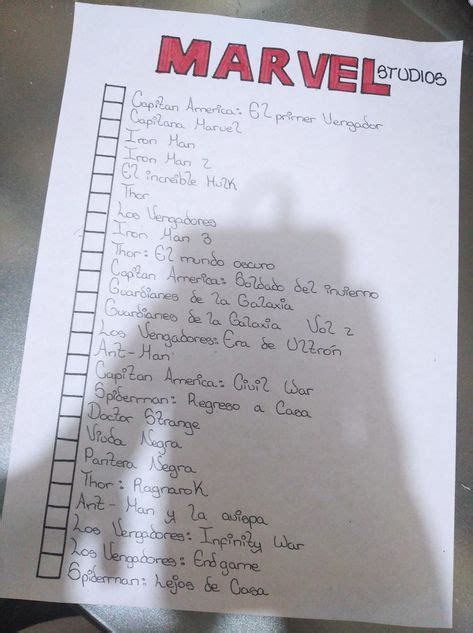 MARVEL STUDIOS
Capitan America: El primer Vengador
Capitana Marvel
Iron Man
Iron Man 2
El increible Hulk
Thor
Los Vengadores
Iron Man 3
Thor: El mundo oscuro
Capitan America: Soldado del invierno
Guardianes de la Galaxia
Guardianes de la Galaxia Vol 2
Los Vengadores: Era de Ultrón
Ant-Man
Capitan America: Civil War
Spiderman: Regreso a Casa
Doctor Strange
Viuda Negra
Pantera Negra
Thor: Ragnarok
Ant-Man y la avispa
Los Vengadores: Infinity War
Los Vengadores: Endgame
Spiderman: Lejos de Casa